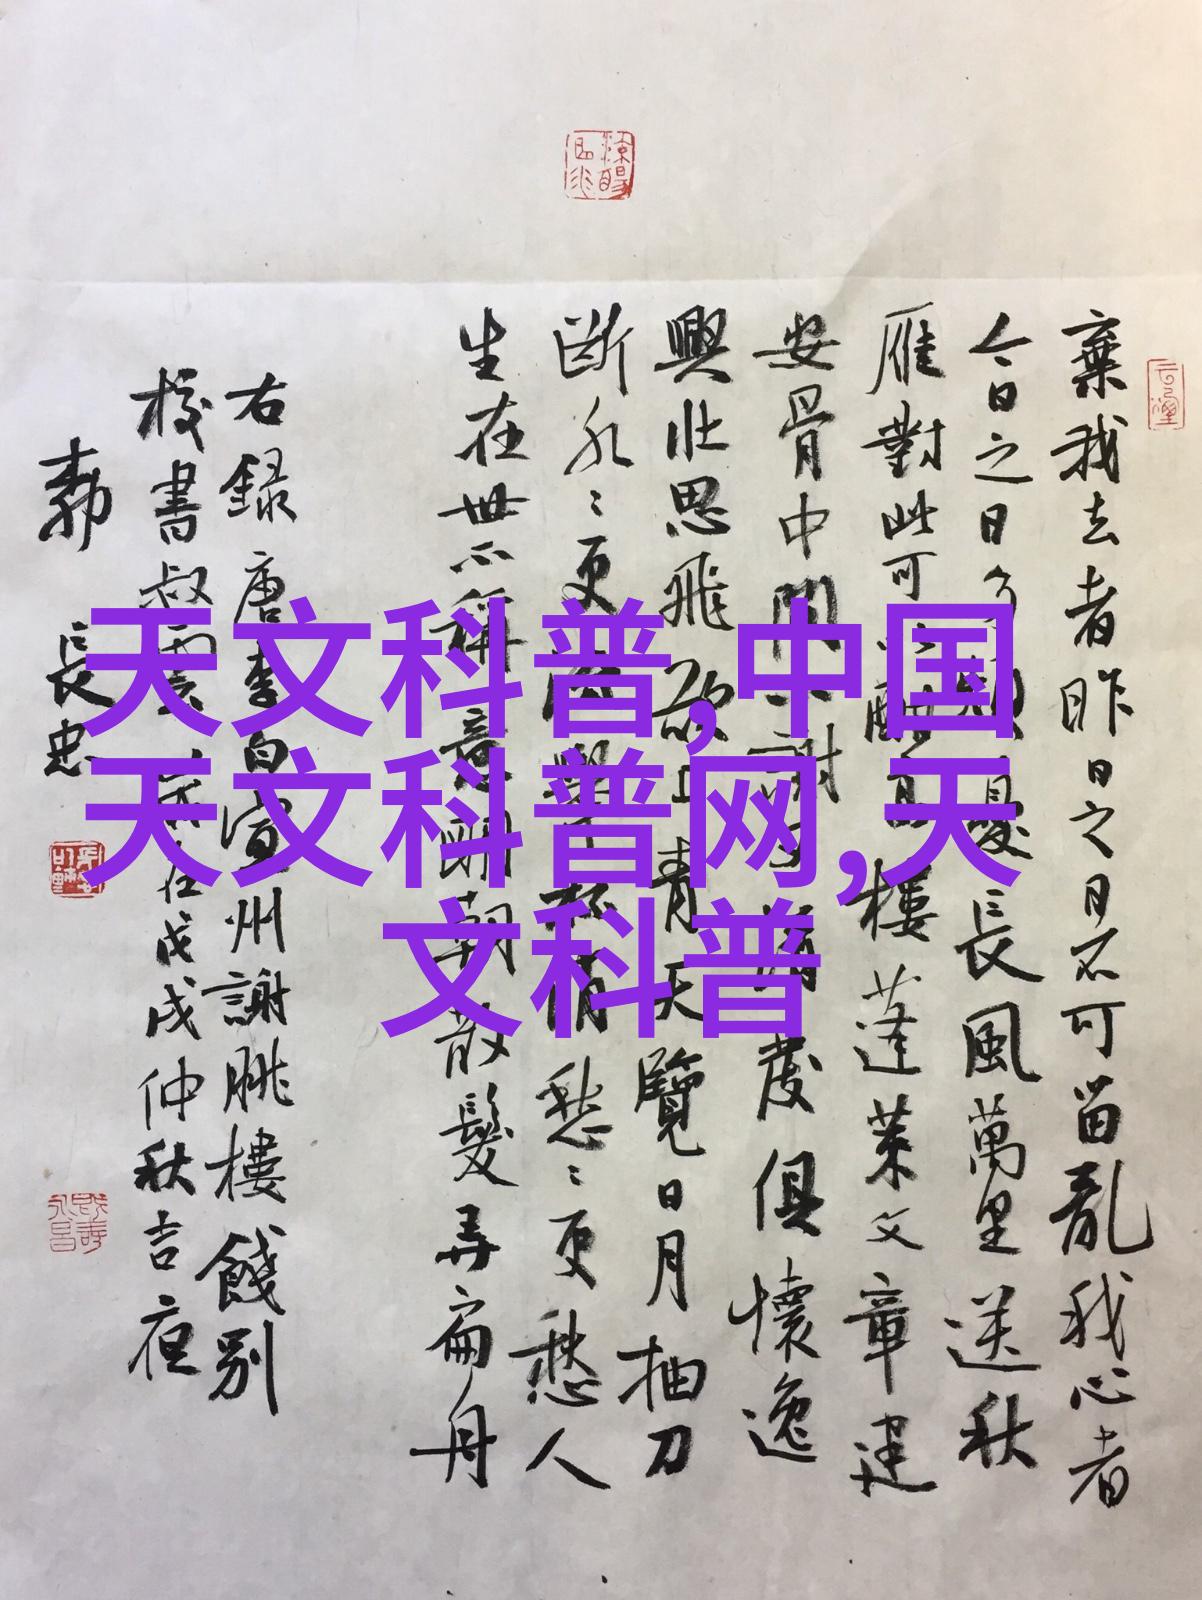 棄我去者昨日之日不可留亂我心者
今日之日多煩憂長風萬里送秋
雁對此可以酣高樓蓬萊文章建
安骨中間小謝又清發俱懷逸
興壯思飛欲上青天覽日月抽刀
斷水〻更流舉杯銷愁〻更愁人
生在世不稱意明朝散髮弄扁舟
右錄唐李白宣州謝朓樓餞別
校書叔雲 戊戌仲秋吉夜
長忠
天文科普,中国
天文科普网,天
文科普